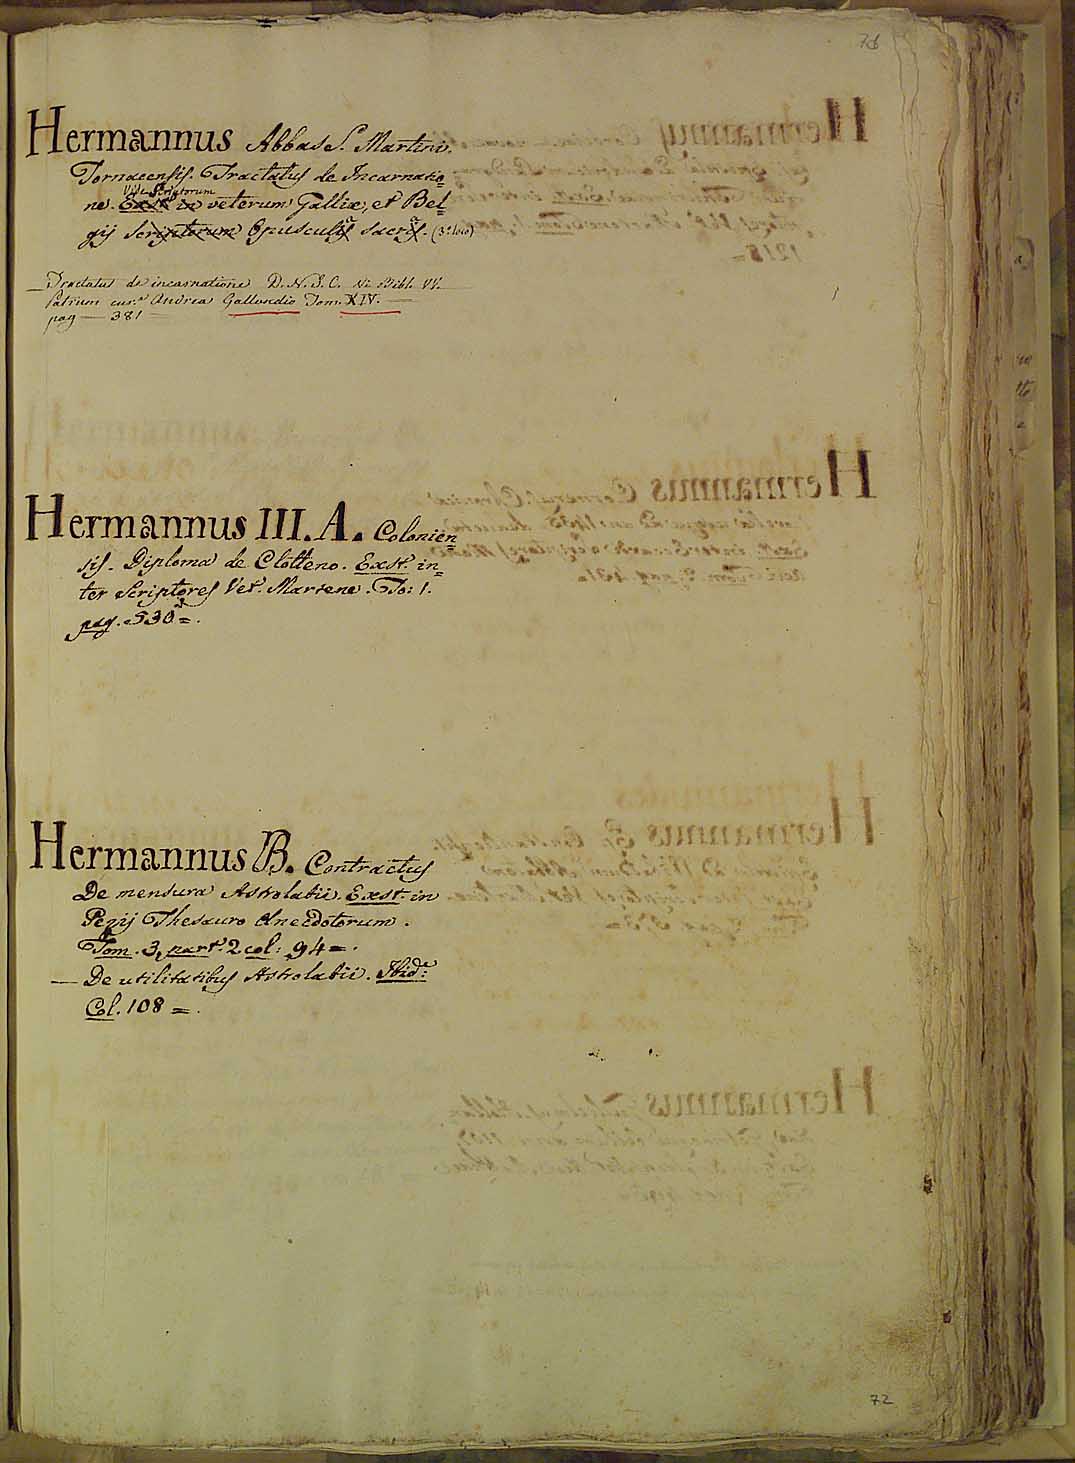 76
Hermannus Abbas S. Martini.
Tornacensis. Tractatus de Incarnatio=
Vide Scriptorum
ne. Exst. in veterum Galliæ, et Bel=
gij Scriptorum Opuscula sacra. (3º loco)
— Tractatus de incarnatione D. N. J. C. Bibl. VV.
Patrum cur.ª Andrea Gallandio Tom. XIV. —
pag — 381 —
Hermannus III. A. Colonien=
sis. Diploma de Clotteno. Exst. in=
ter Scriptores Vet. Martene. To: 1.
pag. 530 =.
Hermannus B. Contractus
De mensura Astrolabii. Exst. in
Pezij Thesauro Anecdotorum.
Tom. 3, part. 2 col: 94 =.
— De utilitatibus Astrolabii. Ibid.
Col. 108 =.
72